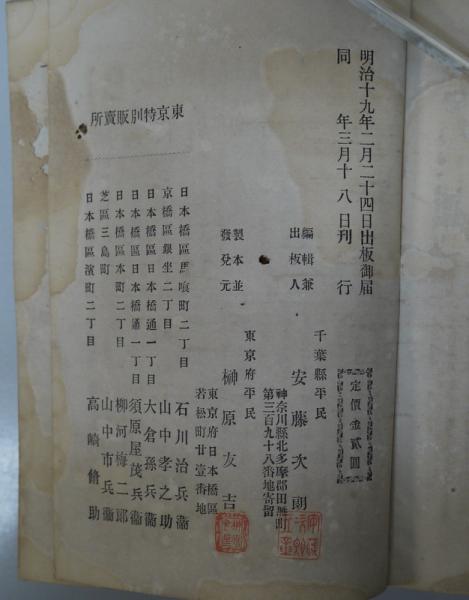 明治十九年二月二十四日出板御届
同年三月十八日刊行
定價金貳圓
編輯兼
出板人
千葉縣平民
安藤次郎
神奈川縣北多摩郡田無町
第三百九十八番地寄留
製本並
發兌元
東京府平民
榊原友吉
東京府日本橋區
若松町廿壹番地
東京特別販賣所
日本橋區馬喰町二丁目 石川治兵衞
京橋區銀坐二丁目 山中孝之助
日本橋區日本橋通一丁目 大倉孫兵衞
日本橋區日本橋通一丁目 須原屋茂兵衞
日本橋區本町二丁目 柳河梅二郎
芝區三島町 山中市兵衞
日本橋區濱町二丁目 高崎脩助